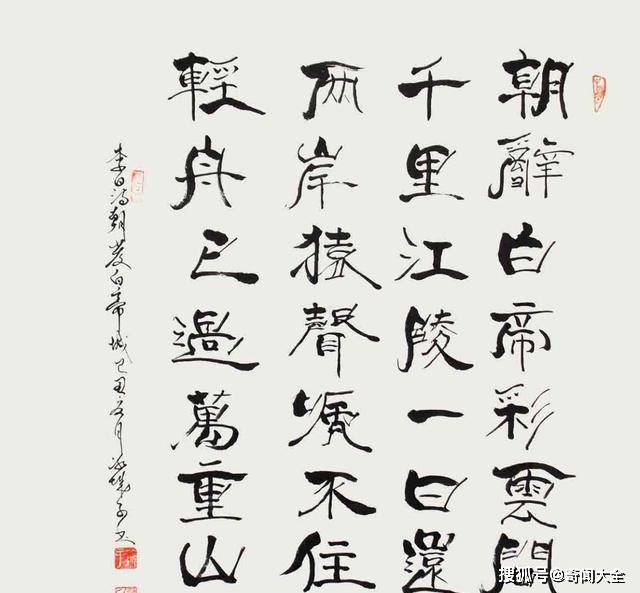 朝辭白帝彩雲間
千里江陵一日還
兩岸猿聲嗁不住
輕舟已過萬重山
李白詩朝發白帝城己丑月書
搜狐号@奇闻大全